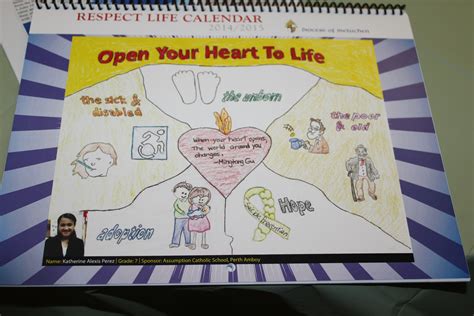 RESPECT LIFE CALENDAR
2014/2015
Diocese of Metuchen
Open Your Heart To Life
the sick &
disabled
the unborn
the poor
& old
When your heart opens,
The world around you
changes.
-Mingtong Gu
adoption
Hope
Name: Katherine Alexis Perez | Grade: 7 | Sponsor: Assumption Catholic School, Perth Amboy